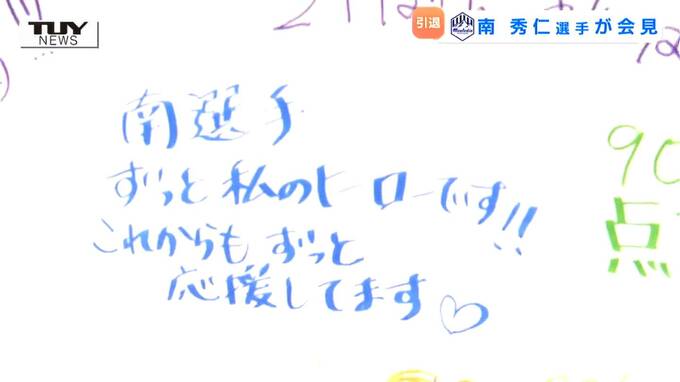 TUY
NEWS
引退
南 秀仁選手が会見
南選手
ずっと私のヒーローです!!
これからもずっと
応援してます♡
90
点